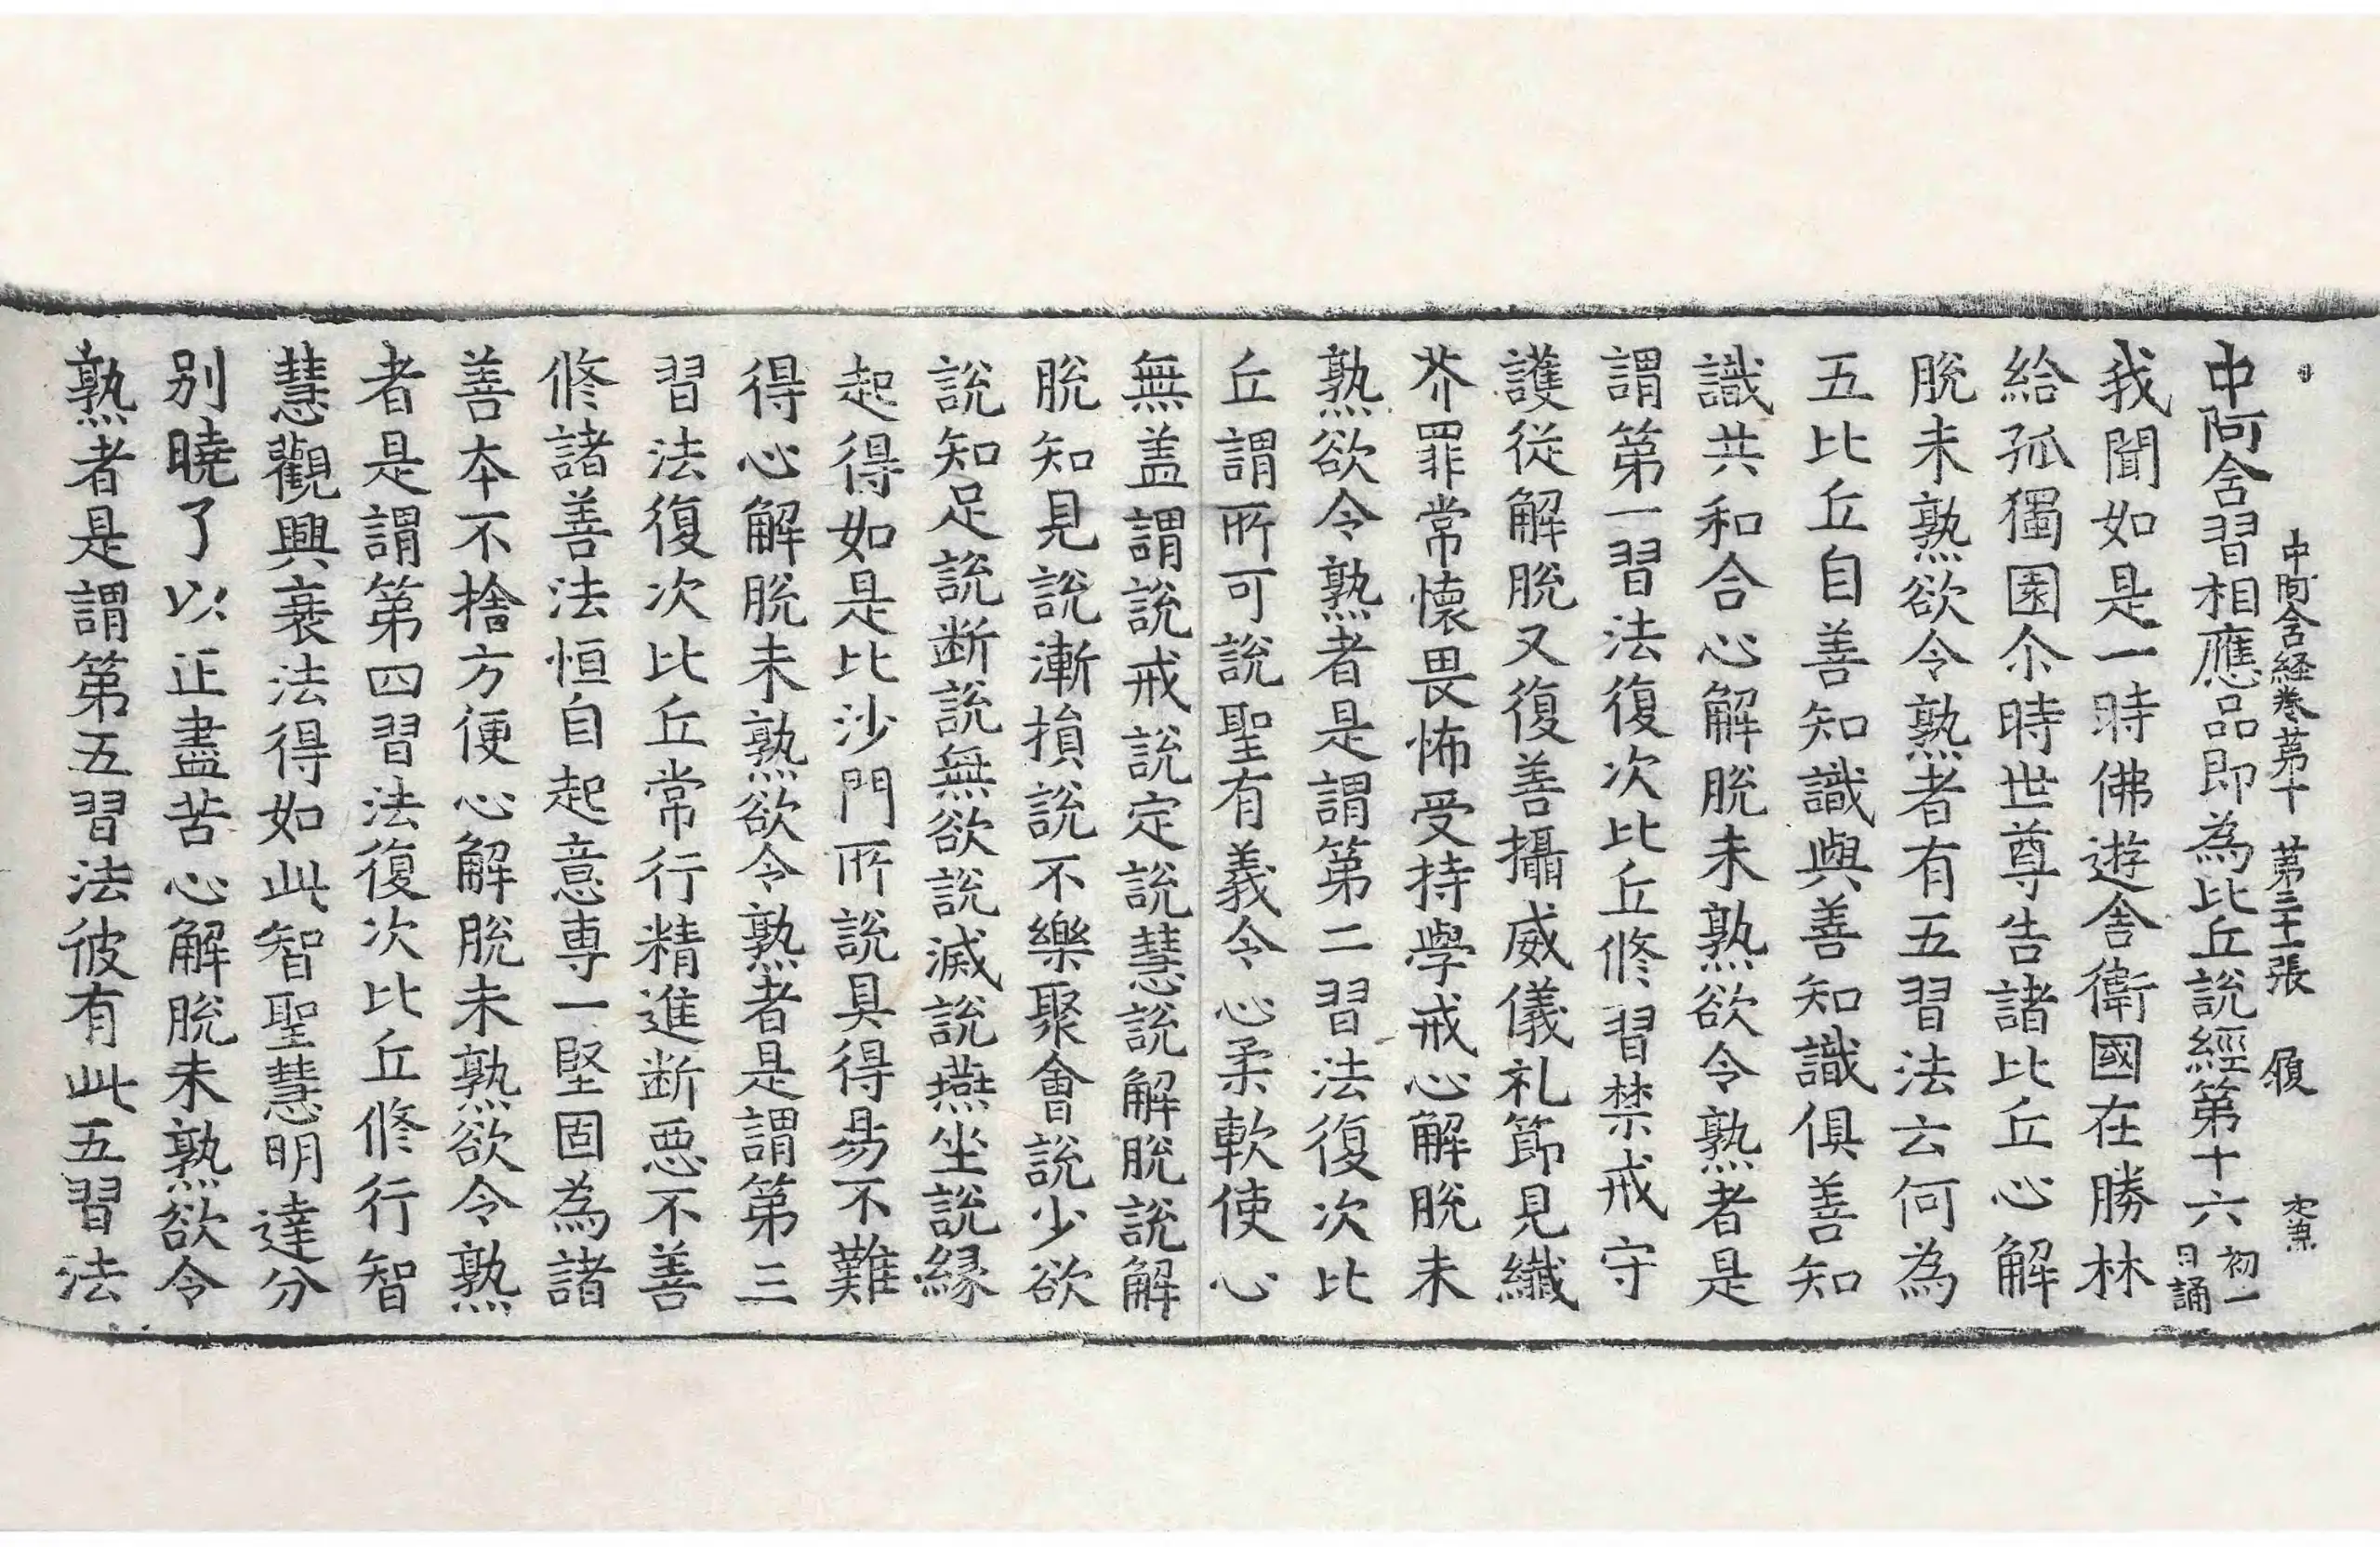 中阿含経巻苐十　苐三十一張　履
中阿含習相應品即為比丘說經第十六 初一日誦
我聞如是一時佛遊舍衛國在勝林
給孤獨園尒時世尊告諸比丘心解
脫未熟欲令熟者有五習法云何為
五比丘自善知識與善知識俱善知
識共和合心解脫未熟欲令熟者是
謂第一習法復次比丘修習禁戒守
護從解脫又復善攝威儀礼節見纖
芥罪常懷畏怖受持學戒心解脫未
熟欲令熟者是謂第二習法復次比
丘謂所可說聖有義令心柔軟使心
無盖謂說戒說定說慧說解脫說解
脫知見說漸損說不樂聚會說少欲
說知足說断說無欲說滅說燕坐說縁
起得如是比沙門所說具得易不難
得心解脫未熟欲令熟者是謂第三
習法復次比丘常行精進断惡不善
修諸善法恒自起意專一堅固為諸
善本不捨方便心解脫未熟欲令熟
者是謂第四習法復次比丘修行智
慧觀興衰法得如此智聖慧明達分
別曉了以正盡苦心解脫未熟欲令
熟者是謂第五習法彼有此五習法